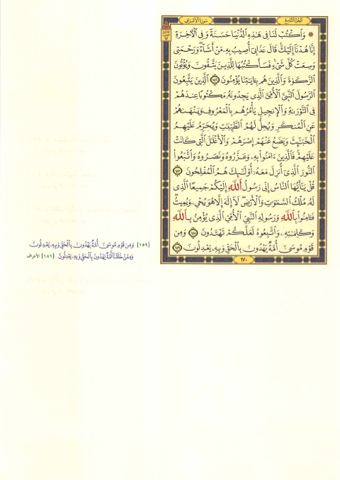 الجزء التاسع
سورة الأعراف
وَٱكْتُبْ لَنَا فِى هَٰذِهِ ٱلدُّنْيَا حَسَنَةً وَفِى ٱلْءَاخِرَةِ
إِنَّا هُدْنَآ إِلَيْكَ قَالَ عَذَابِىٓ أُصِيبُ بِهِۦ مَنْ أَشَآءُ وَرَحْمَتِى
وَسِعَتْ كُلَّ شَىْءٍ فَسَأَكْتُبُهَا لِلَّذِينَ يَتَّقُونَ وَيُؤْتُونَ
ٱلزَّكَوٰةَ وَٱلَّذِينَ هُم بِـَٔايَٰتِنَا يُؤْمِنُونَ ١٥٦ ٱلَّذِينَ يَتَّبِعُونَ
ٱلرَّسُولَ ٱلنَّبِىَّ ٱلْأُمِّىَّ ٱلَّذِى يَجِدُونَهُۥ مَكْتُوبًا عِندَهُمْ
فِى ٱلتَّوْرَىٰةِ وَٱلْإِنجِيلِ يَأْمُرُهُم بِٱلْمَعْرُوفِ وَيَنْهَىٰهُمْ
عَنِ ٱلْمُنكَرِ وَيُحِلُّ لَهُمُ ٱلطَّيِّبَٰتِ وَيُحَرِّمُ عَلَيْهِمُ
ٱلْخَبَٰٓئِثَ وَيَضَعُ عَنْهُمْ إِصْرَهُمْ وَٱلْأَغْلَٰلَ ٱلَّتِى كَانَتْ
عَلَيْهِمْ فَٱلَّذِينَ ءَامَنُوا۟ بِهِۦ وَعَزَّرُوهُ وَنَصَرُوهُ وَٱتَّبَعُوا۟
ٱلنُّورَ ٱلَّذِىٓ أُنزِلَ مَعَهُۥٓ أُو۟لَٰٓئِكَ هُمُ ٱلْمُفْلِحُونَ ١٥٧
قُلْ يَٰٓأَيُّهَا ٱلنَّاسُ إِنِّى رَسُولُ ٱللَّهِ إِلَيْكُمْ جَمِيعًا ٱلَّذِى
لَهُۥ مُلْكُ ٱلسَّمَٰوَٰتِ وَٱلْأَرْضِ لَآ إِلَٰهَ إِلَّا هُوَ يُحْىِۦ وَيُمِيتُ
فَـَٔامِنُوا۟ بِٱللَّهِ وَرَسُولِهِ ٱلنَّبِىِّ ٱلْأُمِّىِّ ٱلَّذِى يُؤْمِنُ بِٱللَّهِ
وَكَلِمَٰتِهِۦ وَٱتَّبِعُوهُ لَعَلَّكُمْ تَهْتَدُونَ ١٥٨ وَمِن
قَوْمِ مُوسَىٰٓ أُمَّةٌ يَهْدُونَ بِٱلْحَقِّ وَبِهِۦ يَعْدِلُونَ ١٥٩
١٧٠
[١٥٩] وَمِن قَوْمِ مُوسَىٰٓ أُمَّةٌ يَهْدُونَ بِٱلْحَقِّ وَبِهِۦ يَعْدِلُونَ
وَمِمَّنْ خَلَقْنَآ أُمَّةٌ يَهْدُونَ بِٱلْحَقِّ وَبِهِۦ يَعْدِلُونَ [١٨١] الأعراف